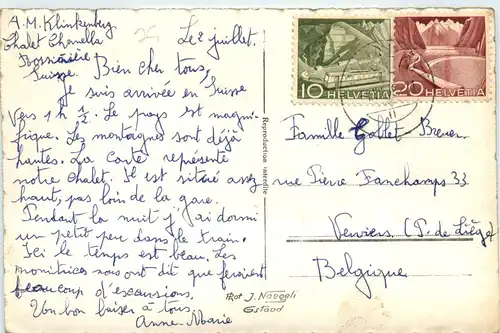 A.M. Klinkenberg
Chalet Chanella
Rossinière
Suisse.
Le 2 juillet.
Bien cher tous,
Je suis arrivée en Suisse
vers 1 h ½. Le pays est magni-
fique. Les montagnes sont déjà
hautes. La carte représente
notre chalet. Il est situé assez
haut, pas loin de la gare.
Pendant la nuit j'ai dormi
un petit peu dans le train.
Ici le temps est beau. Les
monitrices nous ont dit que ferions
beaucoup d'excursions.
Un bon baiser à tous.
Anne-Marie
Reproduction interdite
Phot J. Naegeli
Gstaad
10 HELVETIA
20 HELVETIA
Famille Gallet Breuer.
rue Pierre Fanchamps 33
Verviers (P. de Liège)
Belgique